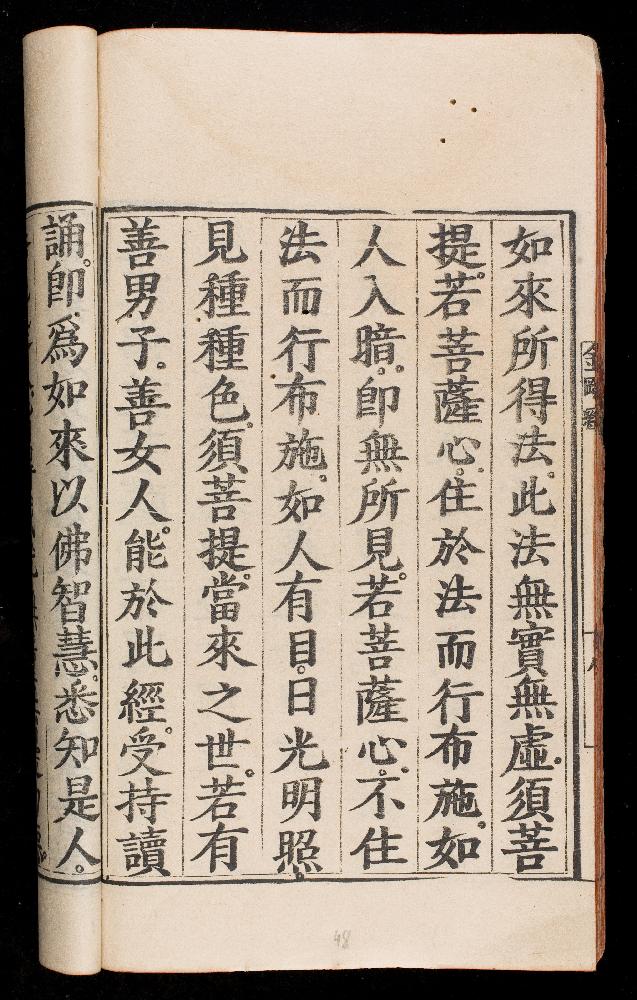 如來所得法。此法無實無虛。須菩
提。若菩薩心。住於法而行布施。如
人入暗。即無所見。若菩薩心。不住
法而行布施。如人有目。日光明照。
見種種色。須菩提。當來之世。若有
善男子。善女人。能於此經。受持讀
誦。即爲如來以佛智慧。悉知是人。